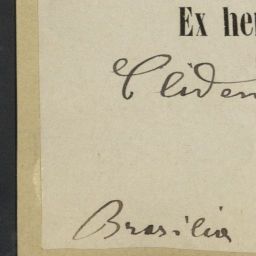 Ex her
Cliden
Brasilia